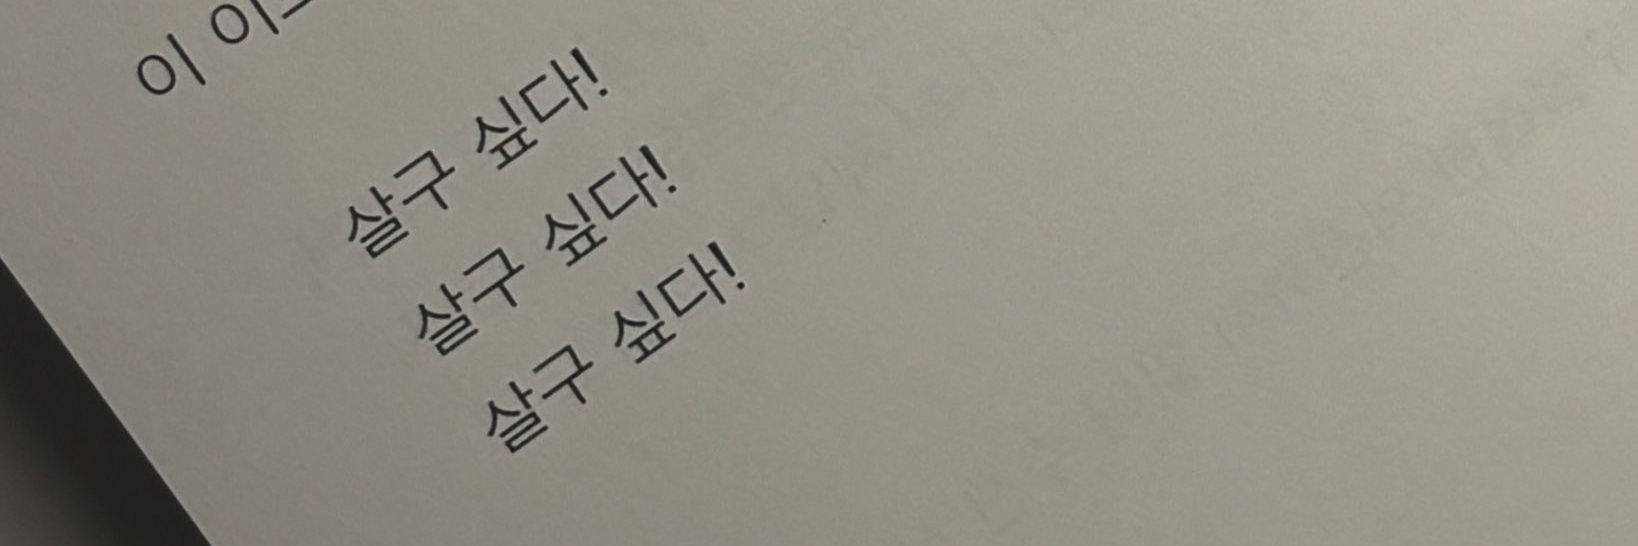 이
살구 싶다!
살구 싶다!
살구 싶다!